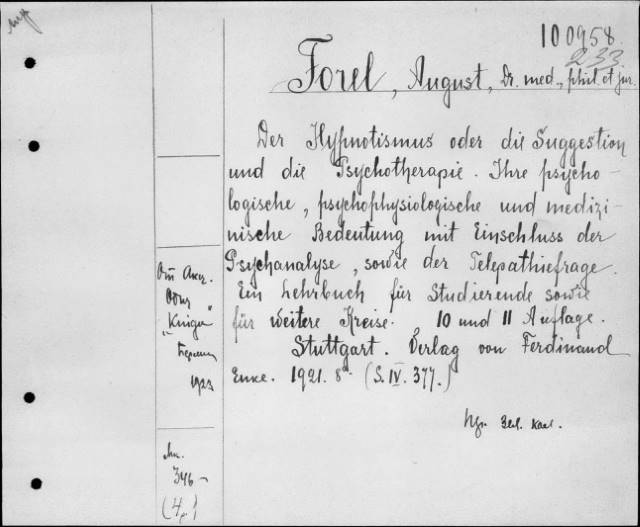 100958
233
Forel, August, Dr. med., phil. et jur.
Der Hypnotismus oder die Suggestion
und die Psychotherapie. Ihre psycho-
logische, psychophysiologische und medizi-
nische Bedeutung mit Einschluss der
Psychanalyse, sowie der Telepathiefrage.
Ein Lehrbuch für Studierende sowie
für weitere Kreise. 10 und 11 Auflage.
Stuttgart. Verlag von Ferdinand
Enke. 1921. 8° (S. IV. 377.)
От Акц.
"Книга"
Берлин
346-